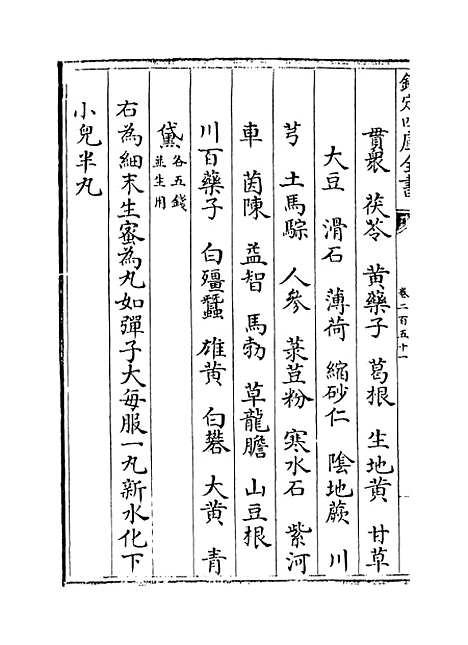 欽定四庫全書
卷二百五十一
貫衆 茯苓 黄藥子 葛根 生地黄 甘草
大豆 滑石 薄荷 縮砂仁 陰地蕨 川
芎 土馬騣 人參 菉荳粉 寒水石 紫河
車 茵陳 益智 馬勃 草龍膽 山豆根
川百藥子 白殭蠶 雄黄 白礬 大黄 青
黛各五錢並生用
右為細末生蜜為丸如彈子大每服一丸新水化下
小兒半丸